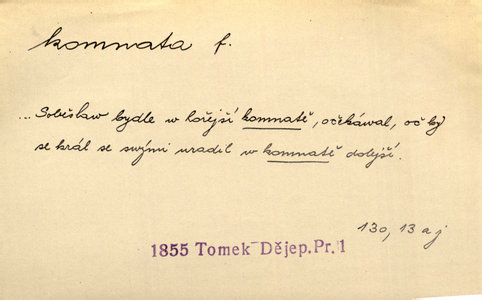 komnata f.
... Soběslaw bydle w hořejší komnatě, očekáwal, oč by
se král se swými uradil w komnatě dolejší.
130, 13 a j
1855 Tomek Dějep. Pr. 1